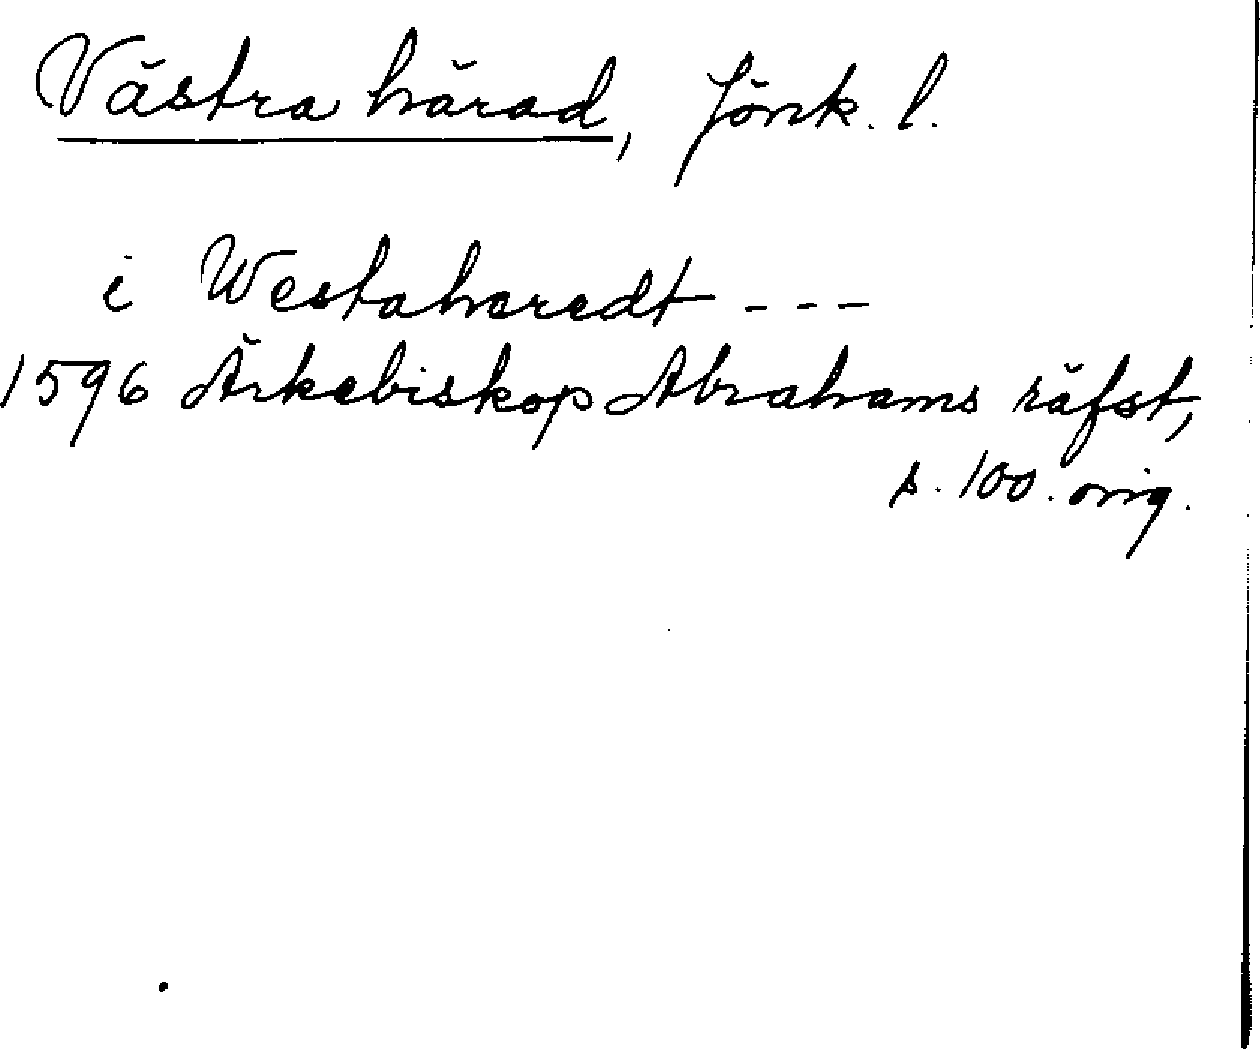 Västra härad, Jönk. l.
i Westaheredt ---
1596 Ärkebiskop Abrahams räfst,
s. 100. orig.